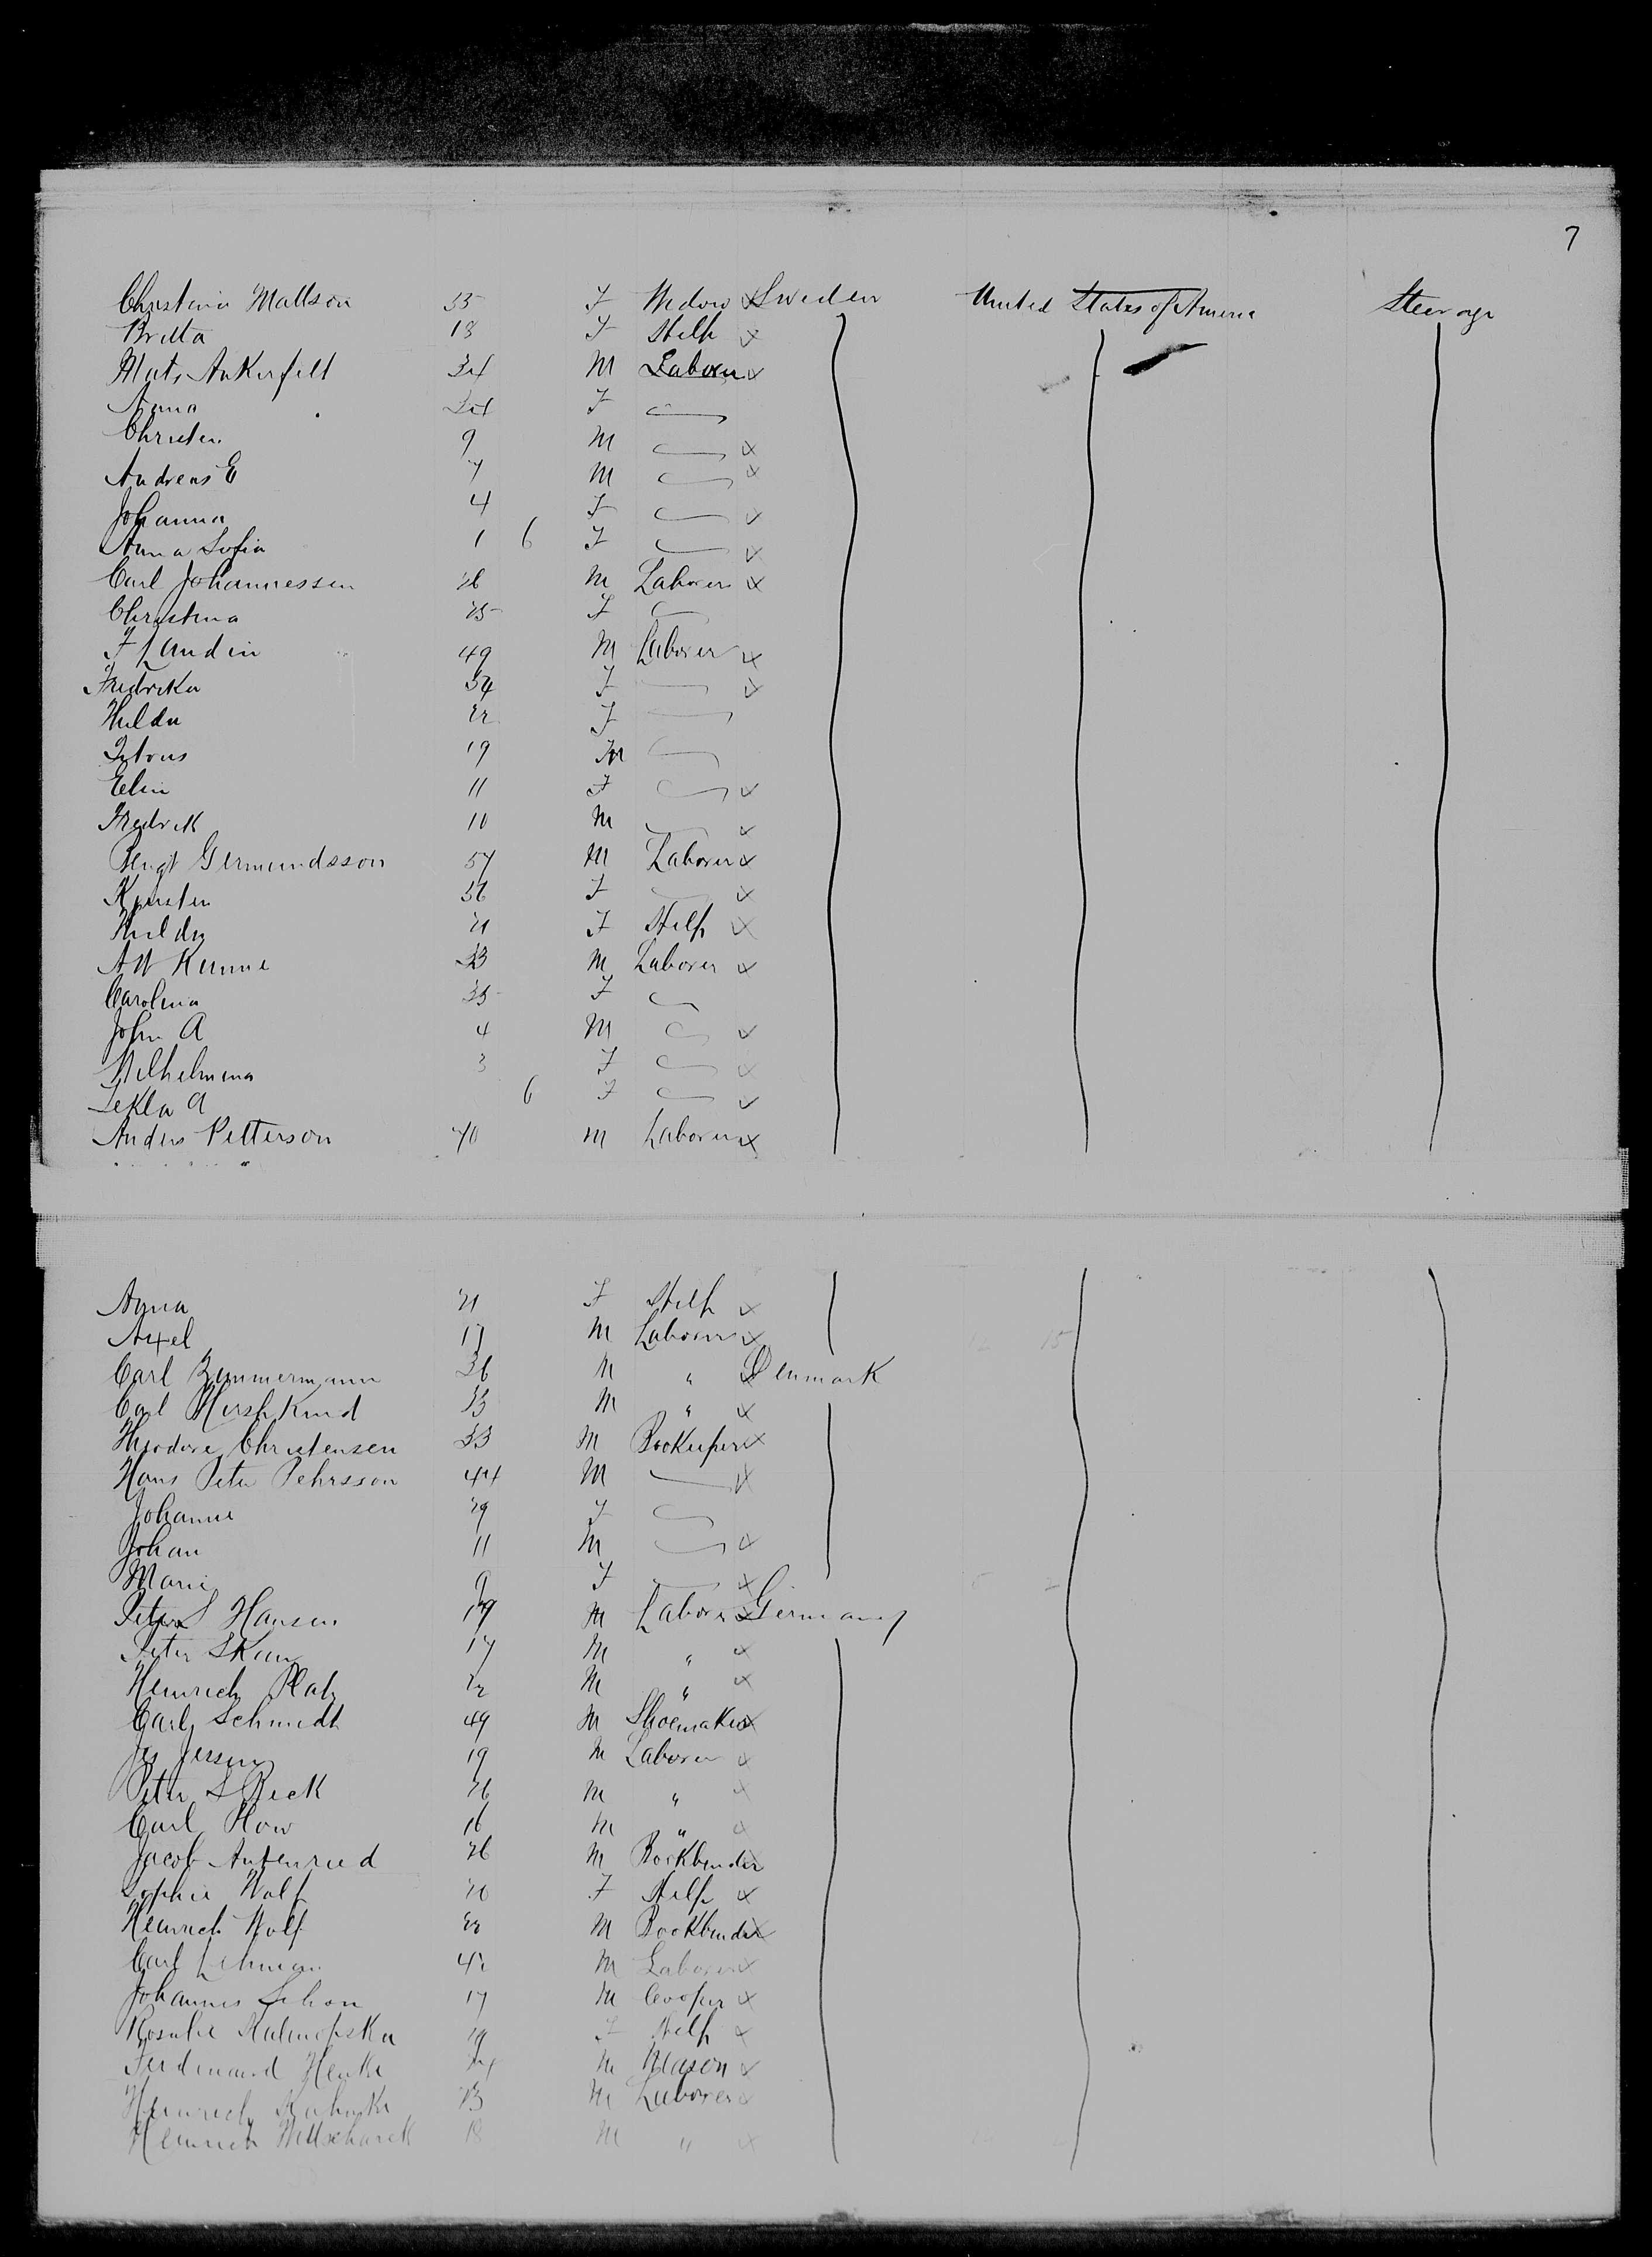 7
Christina Mattson 55 F Widow Sweden United States of America Steerage
Britta 18 F Help
Mats Ankerfelt 34 M Laborer
Anna F
Christen 9 M
Andreas E 7 M
Johanna 4 F
Anna Sofia 1 6 F
Carl Johannessen 26 M Laborer
Christina 25 F
F Lundin 49 M Laborer
Fredrika 54 F
Hulda 22 F
19 M
Elin 11 F
Fredrik 10 M
Bengt Germundsson 57 M Laborer
Kjersten 56 F
21 F Help
33 M Laborer
Carolina 35 F
John A 4 M
Wilhelmina 3 F
Tekla A 6 F
Anders Petterson 40 M Laborer
Anna 21 F Help
Axel 17 M Laborer
Carl Zimmermann 36 M " Denmark
Carl Hirshkind 23 M "
Theodore Christensen 33 M Bookeeper
Hans Peter Pehrsson 44 M
Johanne 29 F
Johan 11 M
Marie 9 F
Peter S Hansen 19 M Laborer Germany
Peter Skau 17 M "
Heinrich 22 M "
Carl Schmidt 49 M Shoemaker
Jes Jessen 19 M Laborer
Peter S Beck 26 M "
Carl How 16 M "
Jacob Autenried 26 M Bookbinder
Sophie Wolf 20 F Help
Heinrich Wolf 22 M Bookbinder
Carl Lehman 42 M Laborer
Johannes Schon 17 M Cooper
Rosalie 19 F Help
Ferdinand Henke 24 M Mason
Heinrich 23 M Laborer
Heinrich 18 M "